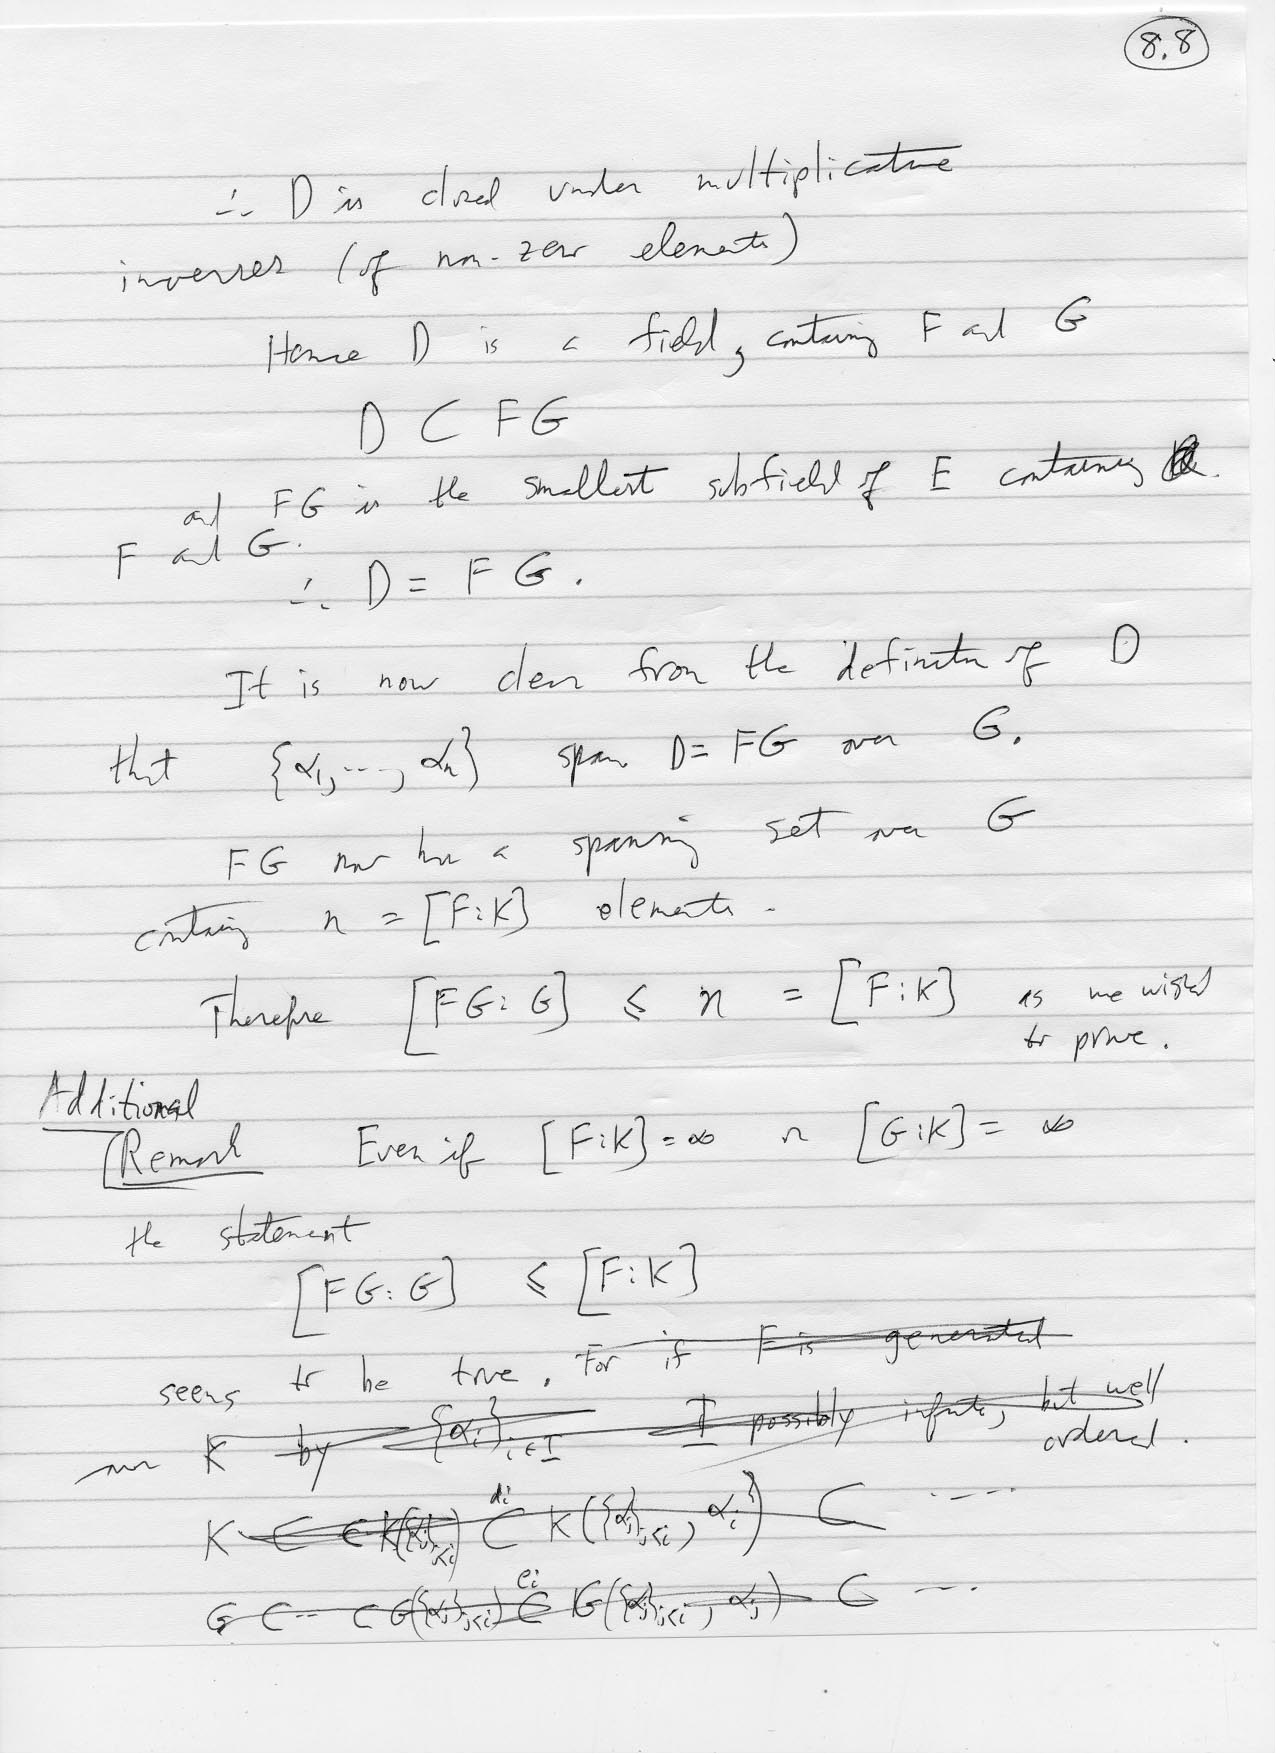 8.8
∴ D is closed under multiplicative
inverses (of non-zero elements)
Hence D is a field, containing F and G
D ⊂ FG
and FG is the smallest subfield of E containing
F and G.
∴ D = FG.
It is now clear from the definition of D
that {α₁, ..., αₙ} span D = FG over G.
FG now has a spanning set over G
containing n = [F:K] elements.
Therefore [FG:G] ≤ n = [F:K] as we wished
to prove.
Additional
Remark Even if [F:K] = ∞ or [G:K] = ∞
the statement
[FG:G] ≤ [F:K]
seems to be true. For if F is generated
over K by {αᵢ}ᵢ∈I I possibly infinite, but well
ordered.
K ⊂ ⊂ K({αⱼ}ⱼ<ᵢ) ⊂ dᵢ K({αⱼ}ⱼ<ᵢ, αᵢ) ⊂ ....
G ⊂ ... ⊂ G({αⱼ}ⱼ<ᵢ) ⊂ eᵢ G({αⱼ}ⱼ<ᵢ, αⱼ) ⊂ ....